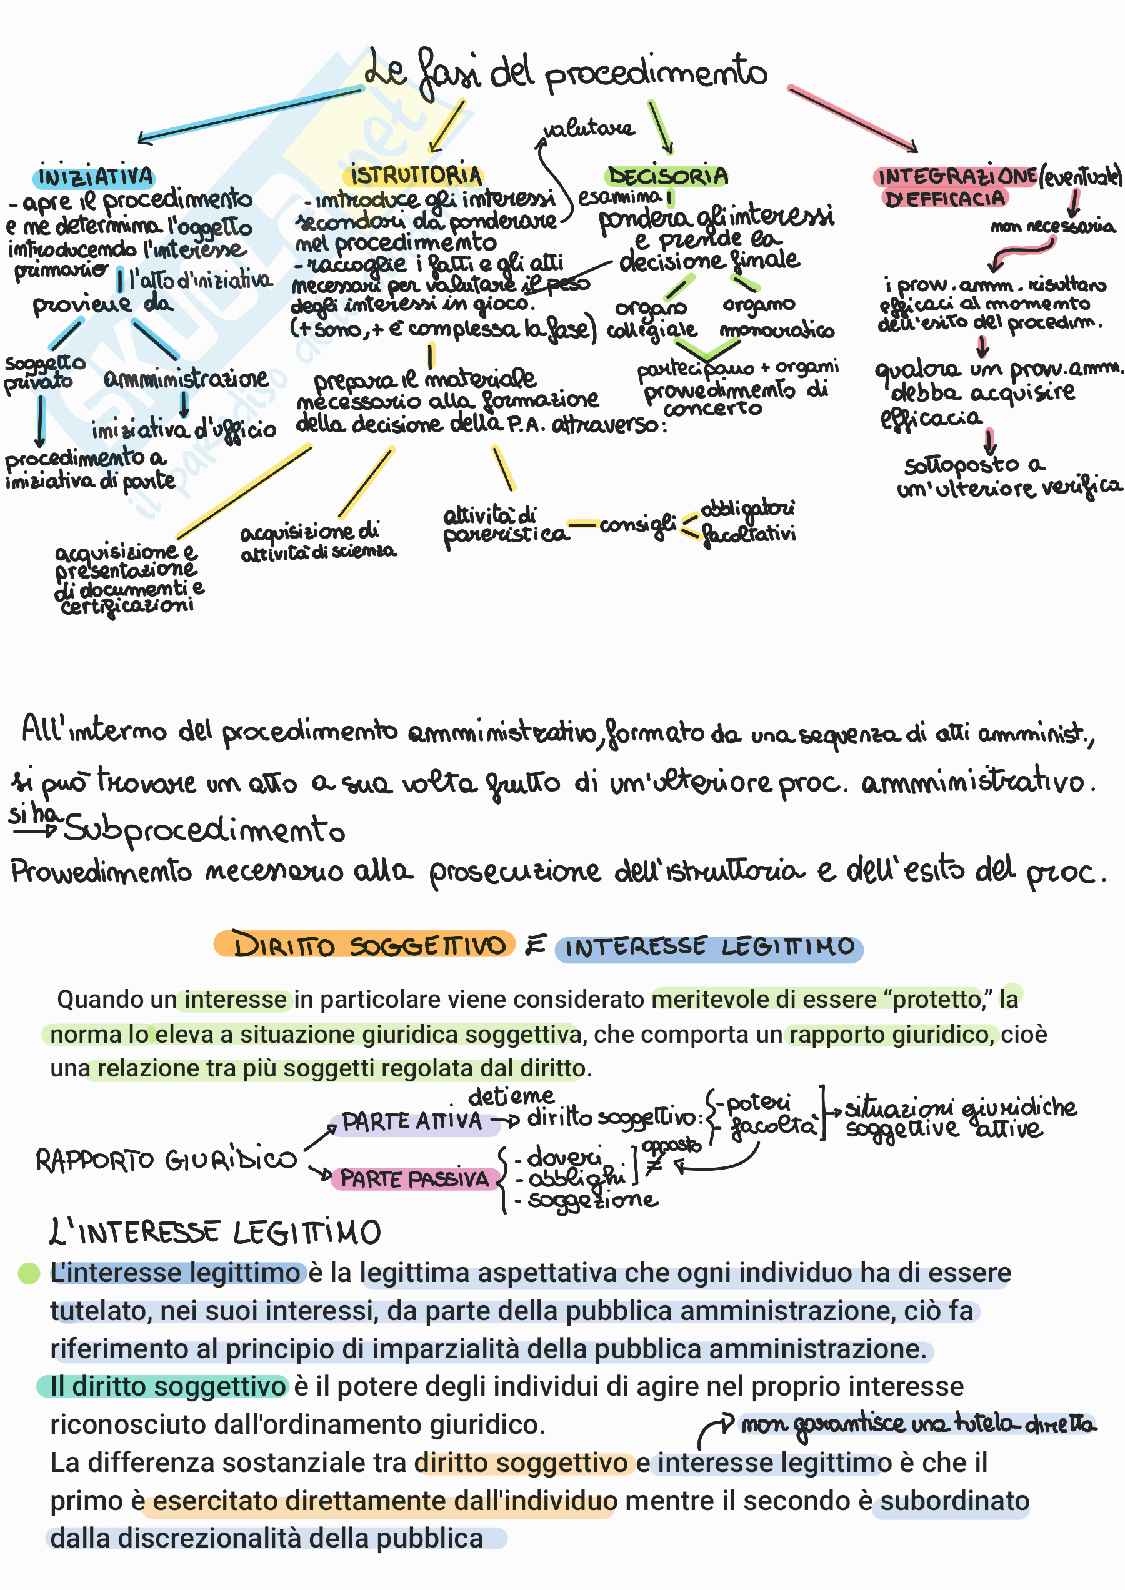 Le fasi del procedimento
INIZIATIVA
- apre il procedimento
e ne determina l'oggetto
introducendo l'interesse
primario
l'atto d'iniziativa
proviene da
soggetto
privato
amministrazione
iniziativa d'ufficio
procedimento a
iniziativa di parte
valutare
ISTRUTTORIA
- introduce gli interessi
secondari da ponderare
nel procedimento
- raccoglie i fatti e gli atti
necessari per valutare il peso
degli interessi in gioco.
(+ sono, + è complessa la fase)
prepara il materiale
necessario alla formazione
della decisione della P.A. attraverso:
acquisizione e
presentazione
di documenti e
certificazioni
acquisizione di
attività di scienza
attività di
pareristica
consigli
obbligatori
facoltativi
DECISORIA
esamina
pondera gli interessi
e prende la
decisione finale
organo
collegiale
organo
monocratico
partecipano + organi
provvedimento di
concerto
INTEGRAZIONE (eventuale)
D'EFFICACIA
non necessaria
i prov. amm. risultano
efficaci al momento
dell'esito del procedim.
qualora un provv. amm.
debba acquisire
efficacia
sottoposto a
un'ulteriore verifica
SKUOLA.net
il paradiso dello
All'interno del procedimento amministrativo, formato da una sequenza di atti amminist.,
si può trovare un atto a sua volta frutto di un'ulteriore proc. amministrativo.
si ha
Subprocedimento
Provvedimento necessario alla prosecuzione dell'istruttoria e dell'esito del proc.
DIRITTO SOGGETTIVO E INTERESSE LEGITTIMO
Quando un interesse in particolare viene considerato meritevole di essere “protetto,” la
norma lo eleva a situazione giuridica soggettiva, che comporta un rapporto giuridico, cioè
una relazione tra più soggetti regolata dal diritto.
RAPPORTO GIURIDICO
detiene
PARTE ATTIVA → diritto soggettivo:
- poteri
- facoltà
situazioni giuridiche
soggettive attive
PARTE PASSIVA
- doveri
- obblighi
- soggezione
opposto
≠
L'INTERESSE LEGITTIMO
L'interesse legittimo è la legittima aspettativa che ogni individuo ha di essere
tutelato, nei suoi interessi, da parte della pubblica amministrazione, ciò fa
riferimento al principio di imparzialità della pubblica amministrazione.
Il diritto soggettivo è il potere degli individui di agire nel proprio interesse
riconosciuto dall'ordinamento giuridico.
non garantisce una tutela diretta
La differenza sostanziale tra diritto soggettivo e interesse legittimo è che il
primo è esercitato direttamente dall'individuo mentre il secondo è subordinato
dalla discrezionalità della pubblica